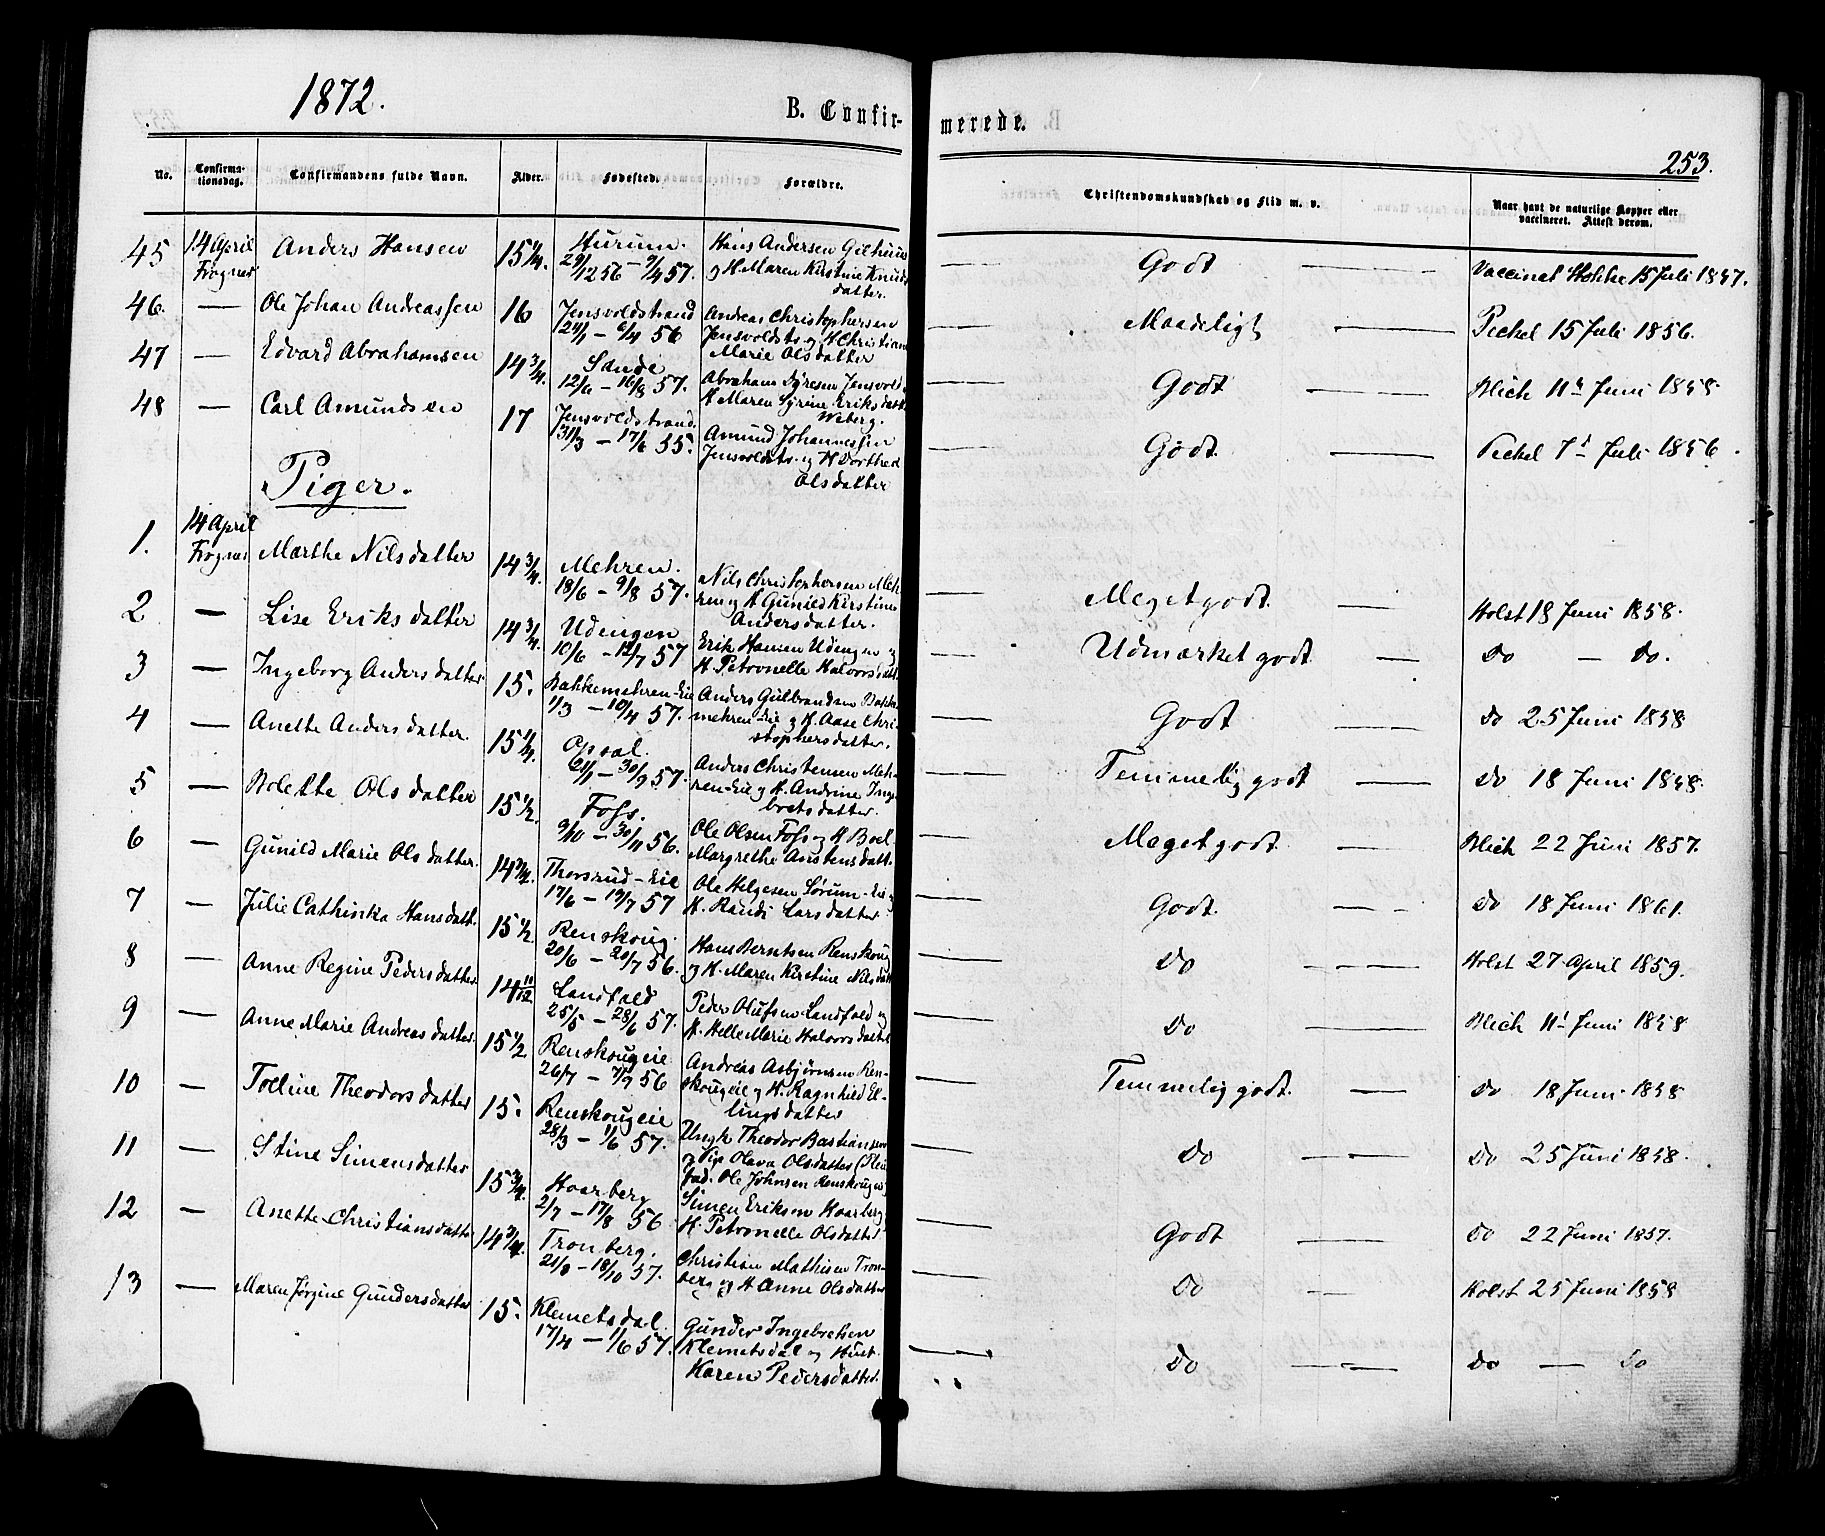 1872.
B. Confirmerede.
253.
No. Confirmationsdag. Confirmandens fulde Navn. Alder. Fødested. Forældre. Christendomskundskab og Flid m. v. Naar havt de naturlige Kopper eller vaccineret. Attest derom.
45 14 April Frogner Anders Hansen 15 1/4. Hurum. 29/12 56 – 9/4 57. Hans Andersen Gilhuus og H Maren Kirstine Knudsdatter. Godt Vaccinat Holst 15 Juli 1857.
46. — Ole Johan Andreassen 16 Jensvoldstrand 24/1 – 6/4 56 Andreas Christophersen Jensvoldstr. og H Christiane Marie Olsdatter Maadeligt Pechel 15 Juli 1856.
47 — Edvard Abrahamsen 14 3/4. Sande 12/6 – 16/8 57. Abraham Syresen Jensvold H Maren Syrine Eriksdatter Weberg. Godt Blich 11te Juni 1858
48 — Carl Amundsen 17 Jensvoldstrand. 31/3 – 17/6 55. Amund Johannessen Jensvoldstr. og H Dorthea Olsdatter Godt. Pechel 7de Juli 1856.
Piger.
1. 14 April Frogner Marthe Nilsdatter 14 3/4. Mehren. 18/6 – 9/8 57. Nils Christophersen Mehren og H Gunild Kirstine Andersdatter. Meget godt. Holst 18 Juni 1858.
2 — Lise Eriksdatter 14 3/4. Udengen 10/6 – 12/7 57 Erik Hansen Udengen og H. Petronelle Halvorsdatt. Udmærket godt Do — Do.
3 — Ingeborg Andersdatter 15. Bakkemehren-Eie 1/3 – 10/4 57. Anders Gulbrandsen Bakkemehren Eie og H. Aase Christophersdatter. Godt Do 25 Juni 1858
4 — Anette Andersdatter. 15 1/4. Opsal. 21/1 – 30/9 57. Anders Christensen Mehren-Eie og H. Andrine Ingebretsdatter. Temmelig godt Do 18 Juni 1858.
5 — Bolette Olsdatter 15 1/2. Foss. 9/10 – 30/11 56. Ole Olsen Foss og H Boel Margrethe Anstensdatt. Meget godt. Blich 22 Juni 1857.
6 — Gunild Marie Olsdatter. 14 3/4. Thorsrud-Eie 17/6 – 19/7 57 Ole Helgesen Sørum-Eie og H. Randi Larsdatter Godt. Do 18 Juni 1861.
7 — Julie Cathinka Hansdatt. 15 1/2. Renskoug. 20/6 – 20/7 56. Hans Berntsen Renskoug og H. Maren Kirstine Nilsdatt Do Holst 27 April 1859.
8 — Anne Regine Pedersdatter 14 11/12 Landfald 25/5 – 28/6 57. Peder Olufsen Landfald og H. Helle Marie Halvorsdatter Do Blich 11te Juni 1858
9 — Anne Marie Andreasdatter. 15 1/2 Renskougeie 26/7 – 7/9 56 Andreas Asbjørnsen Renskougeie og H. Ragnhild Ellingsdatter Temmelig godt. Do 18 Juni 1858
10 — Toline Theodorsdatter 15. Renskougeie 28/3 – 1/6 57. Ungk Theodor Bastiansen og Pige Olava Olsdatter (Pleiefad. Ole Johnsen Renskougeie) Do Do 25 Juni 1858.
11 — Stine Simensdatter 15 3/4. Haarberg 2/7 – 17/8 56 Simen Eriksen Haarberg H. Petronelle Olsdatter Godt Do 22 Juni 1857.
12 — Anette Christiansdatter 14 3/4. Tronberg. 21/8 – 18/10 57. Christian Mathisen Tronberg og H Anne Olsdatter Do Holst 25 Juni 1858
13 — Maren Jørgine Gundersdatter 15. Klemetsdal. 17/4 – 1/6 57. Gunder Ingebretsen Klemetsdal og Hust. Karen Pedersdatter. Do Do — Do